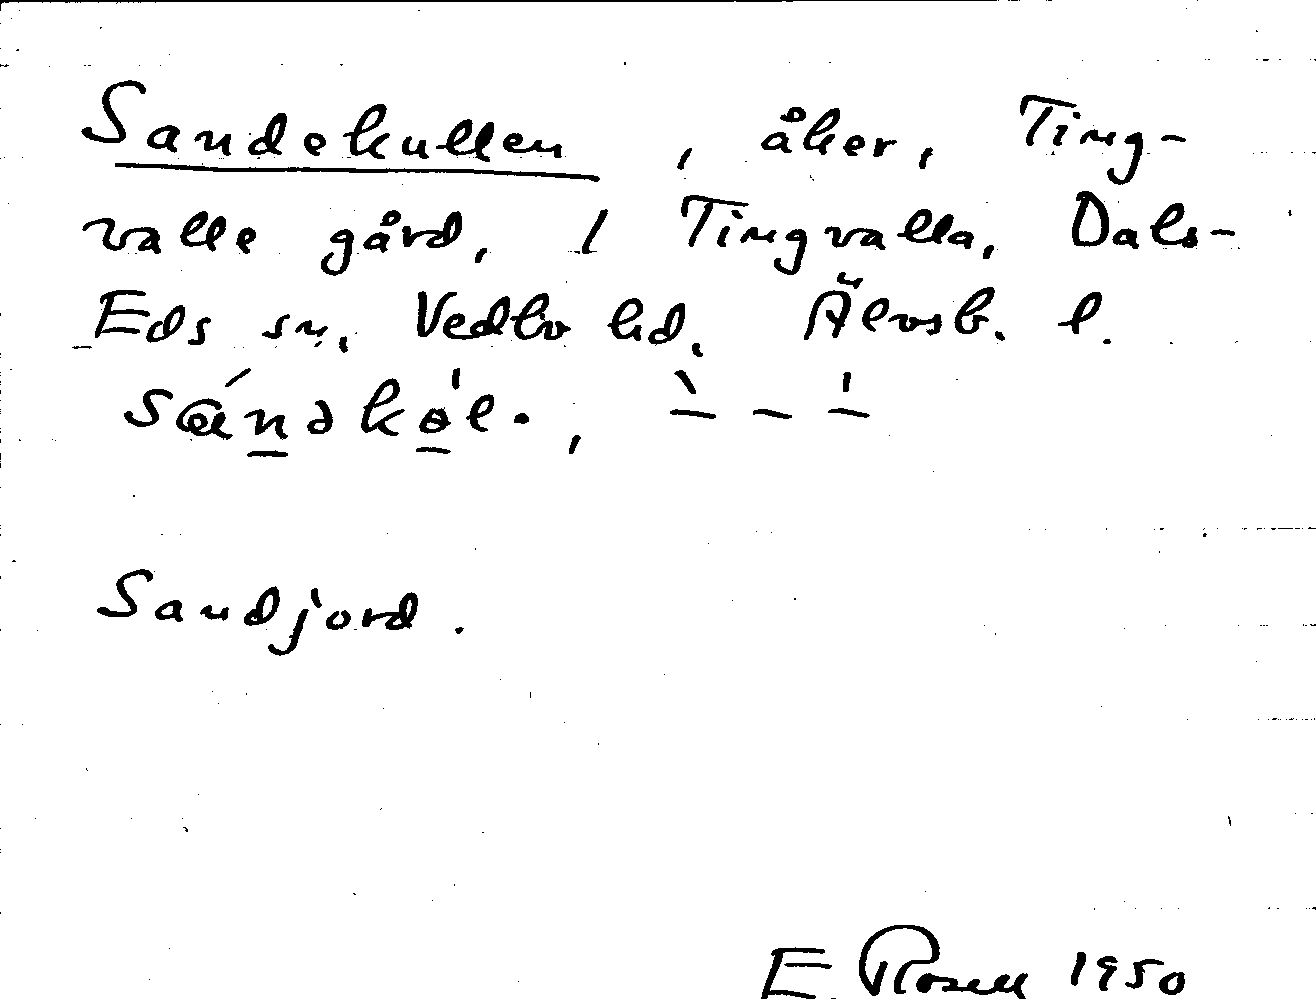 Sandekullen, åker, Ting-
valla gård, 1 Tingvalla, Dals-
Eds sn, Vedbo hd. Älvsb. l.
Sandjord.
E. Rosell 1950